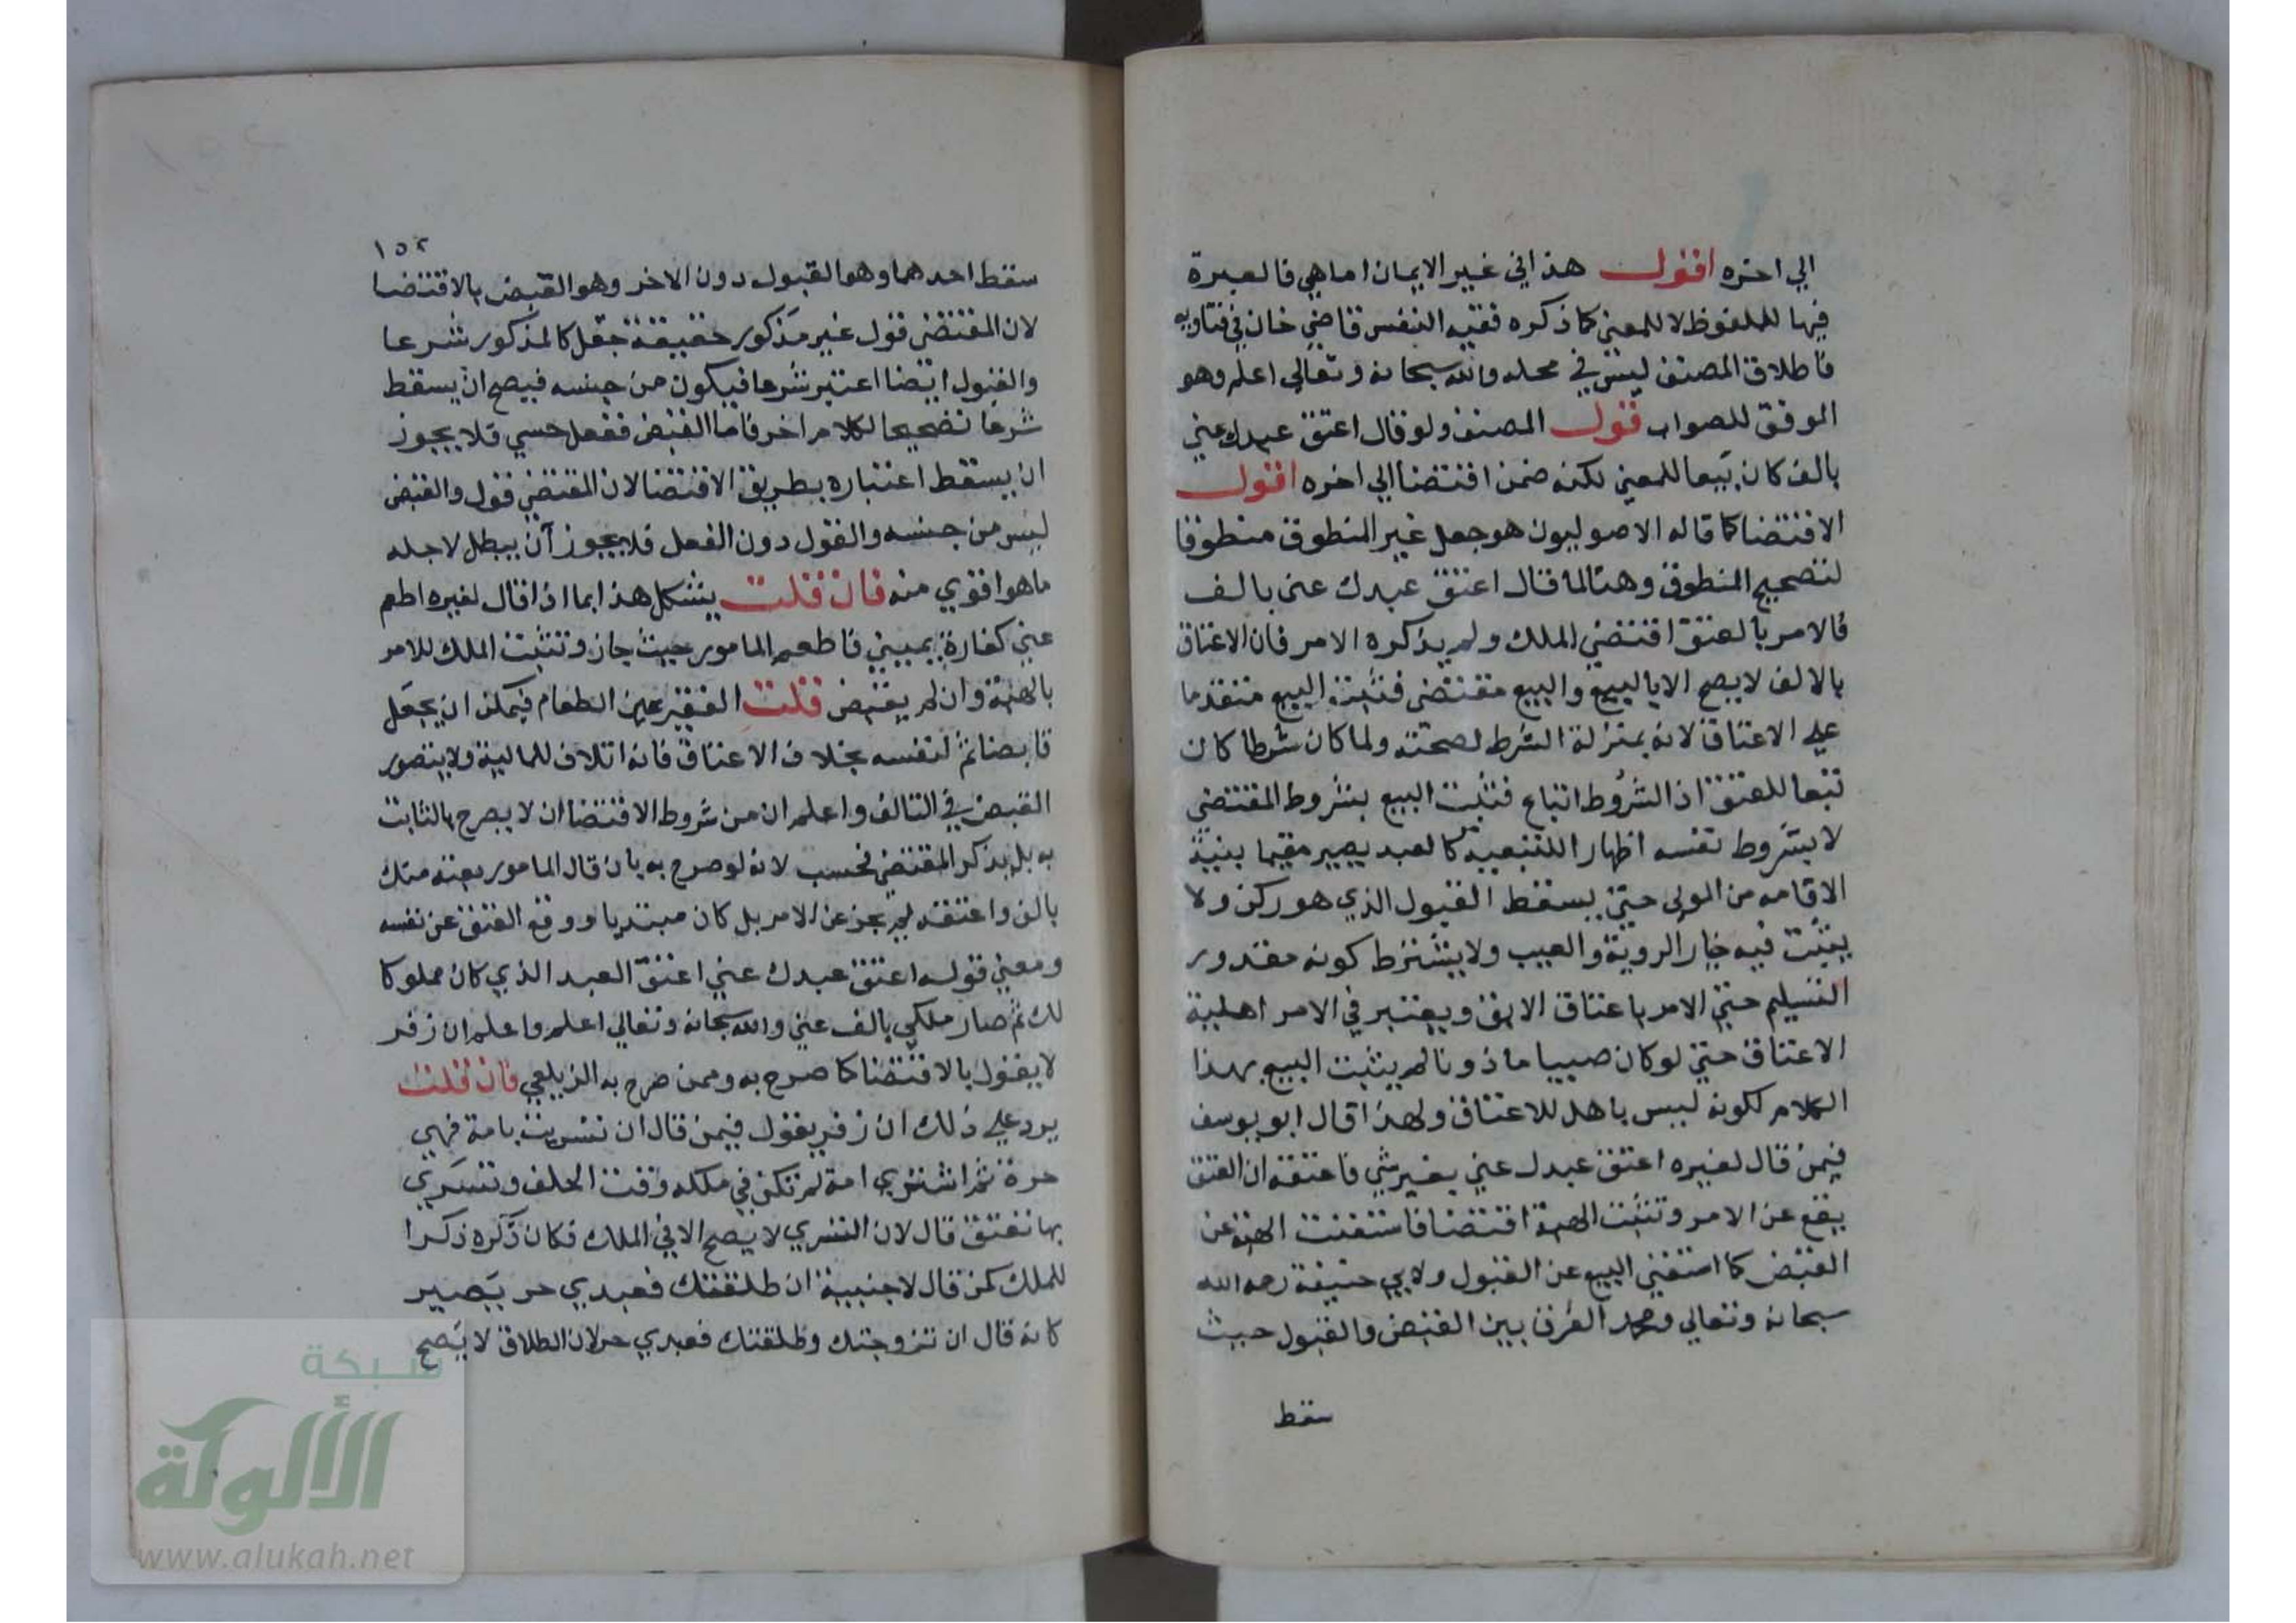 الي اخره اقول هذا في غير الايمان اما هي فالعبرة
فيها للملفوظ لا للمعني كما ذكره فقيه النفس قاضي خان في فتاويه
فاطلاق المصنف ليس في محله والله سبحانه وتعالي اعلم وهو
الموفق للصواب قول المصنف ولو قال اعتق عبدك عني
بالف كان بيعا للمعني لكنه ضمن اقتضا الي اخره اقول
الاقتضا كما قاله الاصوليون هو جعل غير المنطوق منطوقا
لتصحيح المنطوق وهنا لما قال اعتق عبدك عني بالف
فالامر بالعتق اقتضي الملك ولم يذكره الامر فان الاعتاق
بالالف لا يصح الا بالبيع والبيع مقتضي فثبت البيع متقدما
علي الاعتاق لانه بمنزلة الشرط لصحته ولما كان شرطا كان
تبعا للعتق اذ الشروط اتباع فثبت البيع بشروط المقتضي
لا بشروط نفسه اظهارا للتبعية كالعبد يصير مقيما بنية
الاقامه من المولي حتي يسقط القبول الذي هو ركن ولا
يثبت فيه خيار الروية والعيب ولا يشترط كونه مقدور
التسليم حتي الامر باعتاق الابق ويعتبر في الامر اهلية
الاعتاق حتي لو كان صبيا ماذونا لم يثبت البيع بهذا
الكلام لكونه ليس باهل للاعتاق ولهذا قال ابو يوسف
فيمن قال لغيره اعتق عبدك عني بغير شي فاعتقه ان العتق
يقع عن الامر وتثبت الهبة اقتضا فاستغنت الهبة عن
القبض كما استغني البيع عن القبول ولابي حنيفة رحمه الله
سبحانه وتعالي ومحمد الفرق بين القبض والقبول حيث
سقط
١٥٢
سقط احدهما وهو القبول دون الاخر وهو القبض بالاقتضا
لان المقتضي قول غير مذكور حقيقة جعل كالمذكور شرعا
والقبول ايضا اعتبر شرعا فيكون من جنسه فيصح ان يسقط
شرعا تصحيحا لكلام اخر فاما القبض ففعل حسي فلا يجوز
ان يسقط اعتباره بطريق الاقتضا لان المقتضي قول والقبض
ليس من جنسه والقول دون الفعل فلا يجوز ان يبطل لاجله
ما هو اقوي منه فان قلت يشكل هذا بما اذا قال لغيره اطعم
عني كفارة يميني فاطعم المامور حيث جاز وتثبت الملك للامر
بالهبة وان لم يقبض قلت الفقير عين الطعام فيمكن ان يجعل
قابضا ثم لنفسه بخلاف الاعتاق فانه اتلاف للمالية ولا يتصور
القبض في التالف واعلم ان من شروط الاقتضا ان لا يصرح بالثابت
به بل يذكر المقتضي فحسب لانه لو صرح به بان قال المامور بعته منك
بالف واعتقه لم يجز عن الامر بل كان مبتديا ووقع العتق عن نفسه
ومعني قوله اعتق عبدك عني اعتق العبد الذي كان مملوكا
لك ثم صار ملكي بالف عني والله سبحانه وتعالي اعلم واعلم ان زفر
لا يقول بالاقتضا كما صرح به وممن صرح به الزيلعي فان قلت
يرد علي ذلك ان زفر يقول فيمن قال ان تسريت بامة فهي
حرة ثم اشتري امة لم تكن في ملكه وقت الحلف وتسري
بها تعتق قال لان التسري لا يصح الا في الملك فكان ذكره ذكرا
للملك كمن قال لاجنبية ان طلقتك فعبدي حر يصير
كانه قال ان تزوجتك وطلقتك فعبدي حر لان الطلاق لا يصح
شبكة
الألوكة
www.alukah.net